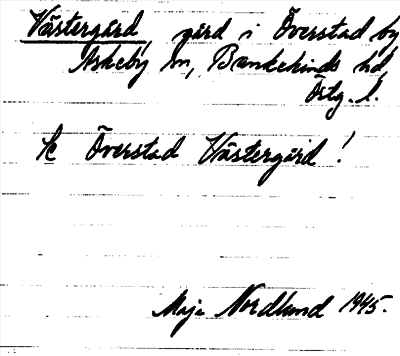 Västergård gård i Överstad by
Askeby sn, Bankekinds hd,
Östg. l.
k Överstad Västergård!
Maja Nordlund 1945.